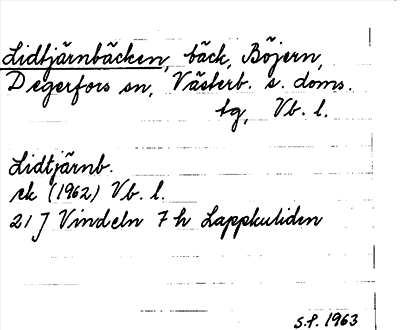 Lidtjärnbäcken, bäck, Böjern,
Degerfors sn, Västerb. s. doms.
tg, Vb. l.
Lidtjärnb.
rk (1962) Vb. l.
21 J Vindeln 7 h Lappkuliden
S.P. 1963